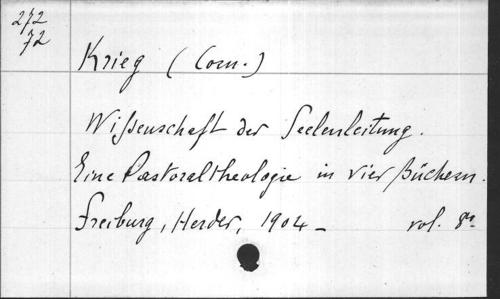 272
72
Krieg (Corn.)
Wissenschaft der Seelenleitung.
Eine Pastoraltheologie in vier Büchern.
Freiburg, Herder, 1904_ vol. 8º